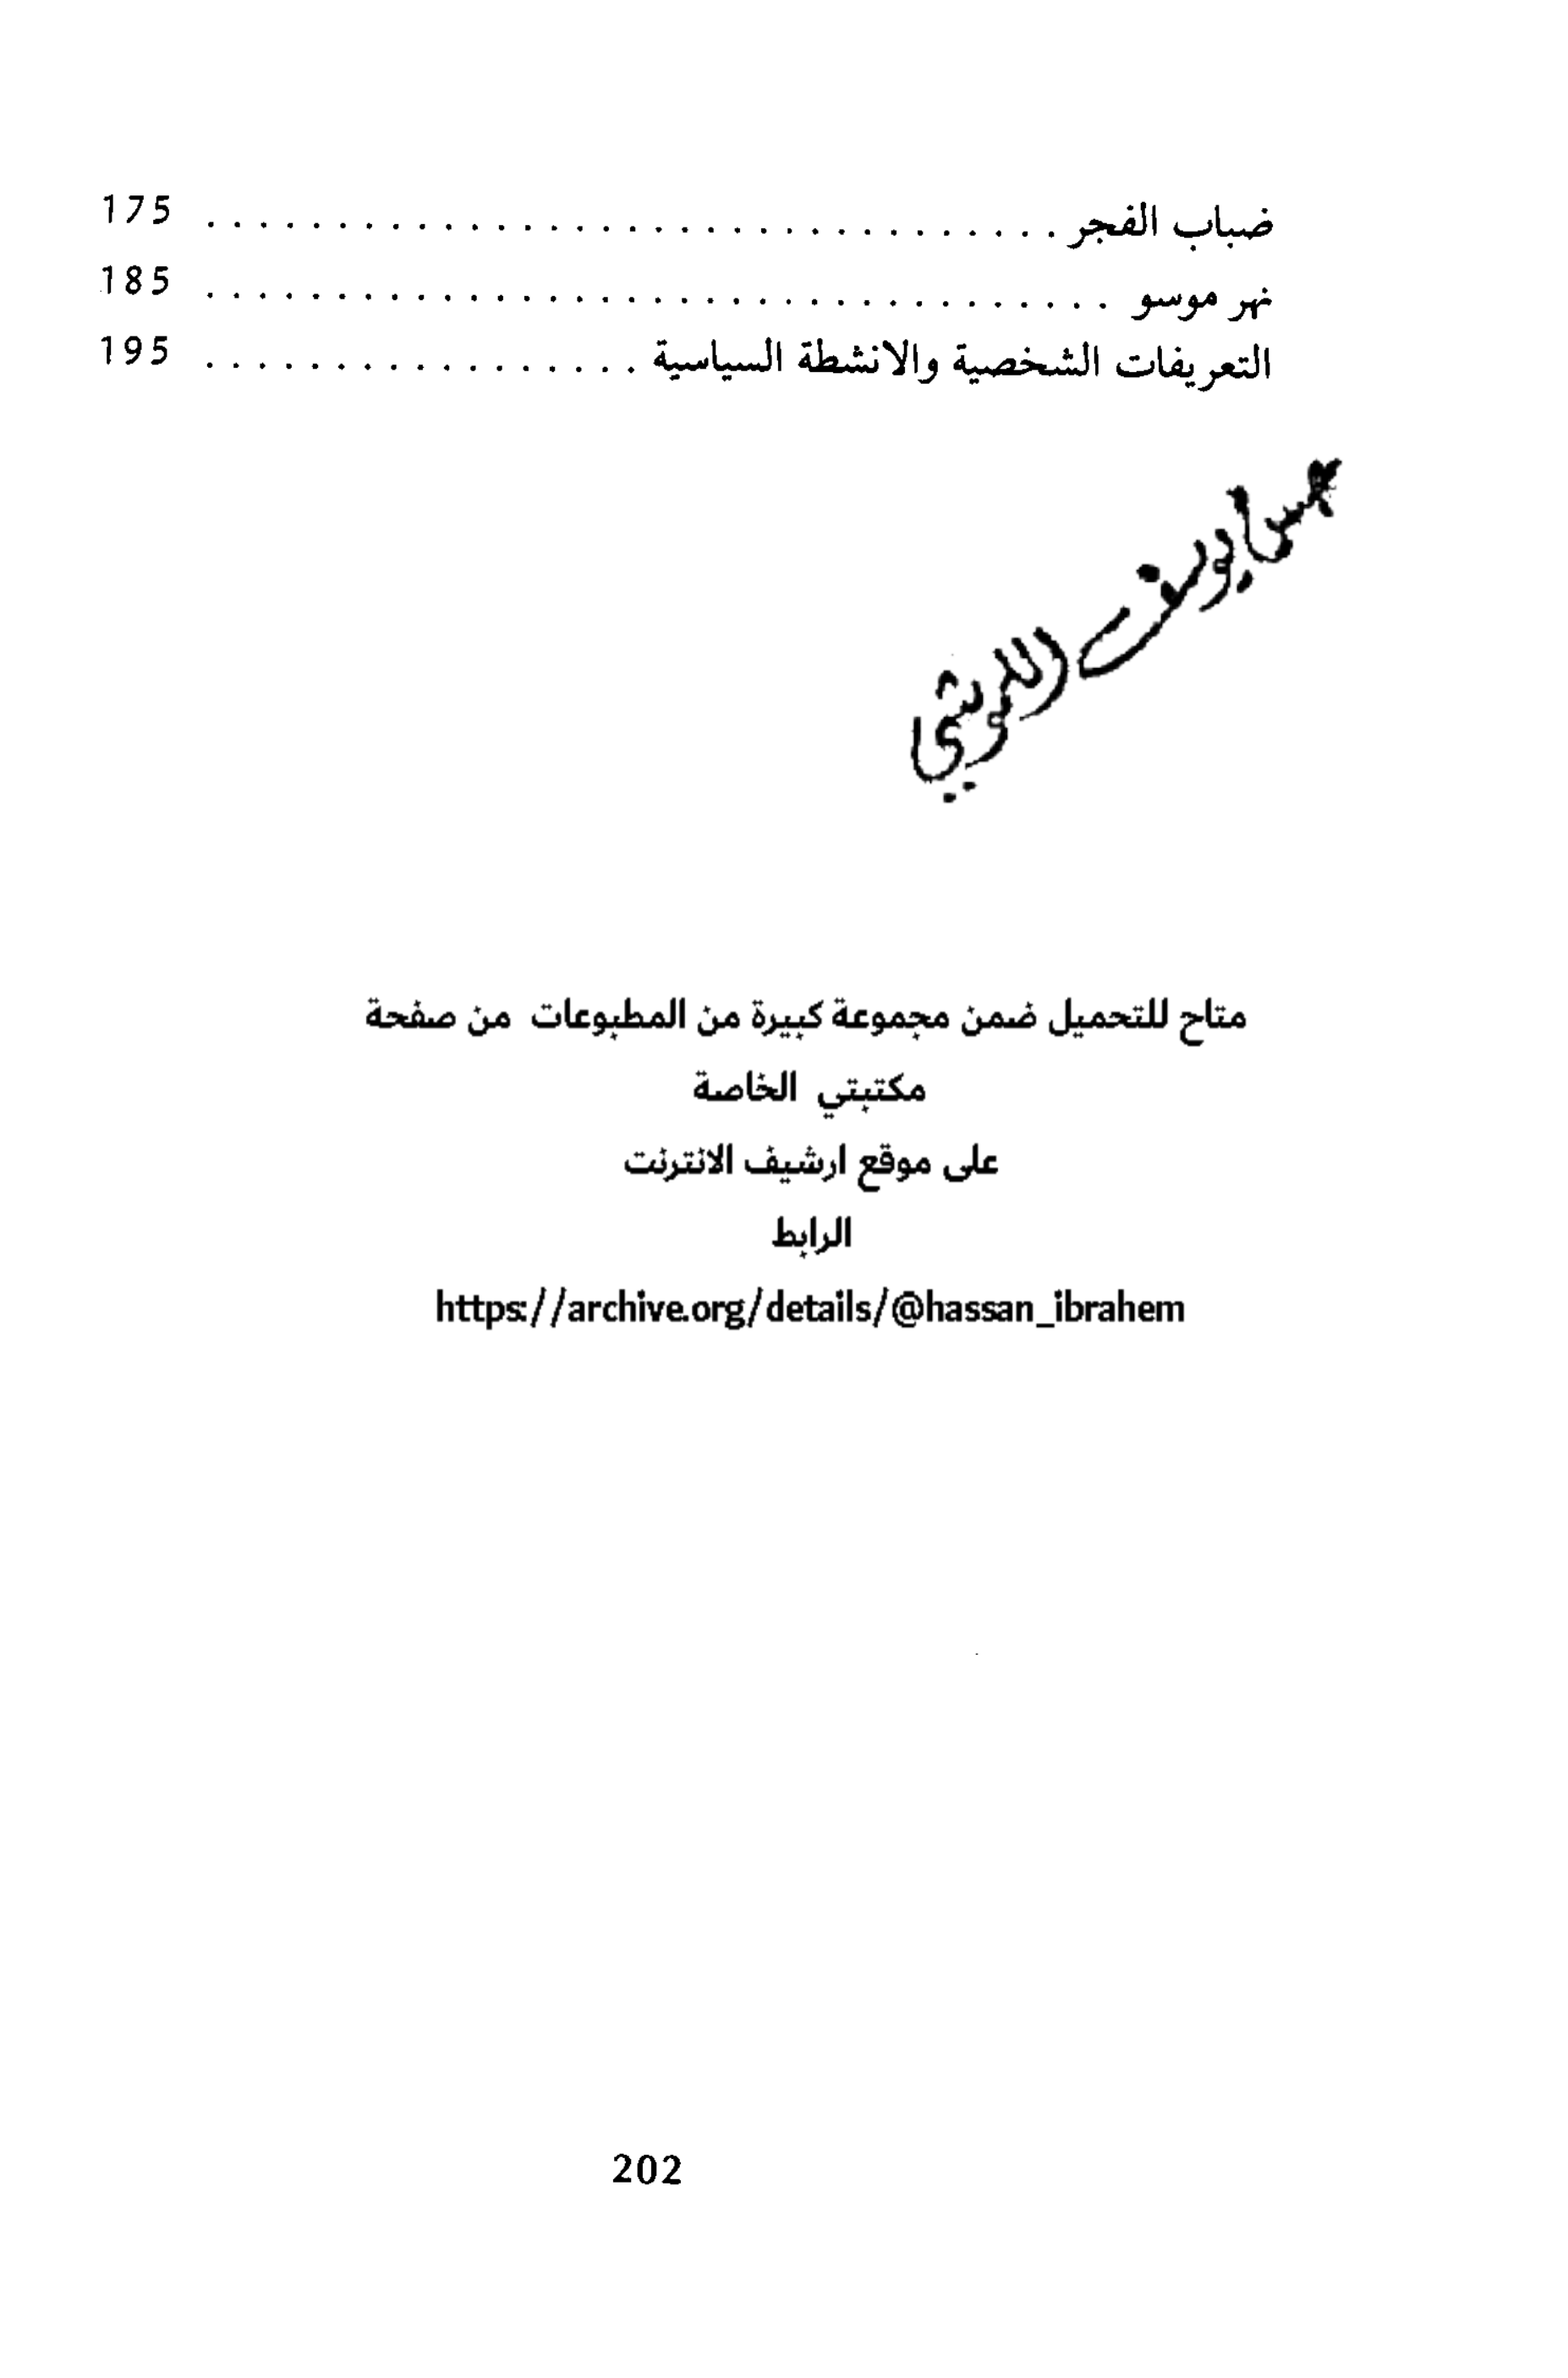 ضباب الفجر . . . . . . . . . . . . . . . . . . . . . . . . . . . . . . . . . 175
نهر موسو . . . . . . . . . . . . . . . . . . . . . . . . . . . . . . . . . . . 185
التعريفات الشخصية والانشطة السياسية . . . . . . . . . . . . . . . . . 195
يوسف
متاح للتحميل ضمن مجموعة كبيرة من المطبوعات من صفحة
مكتبتي الخاصة
على موقع ارشيف الانترنت
الرابط
https://archive.org/details/@hassan_ibrahem
202